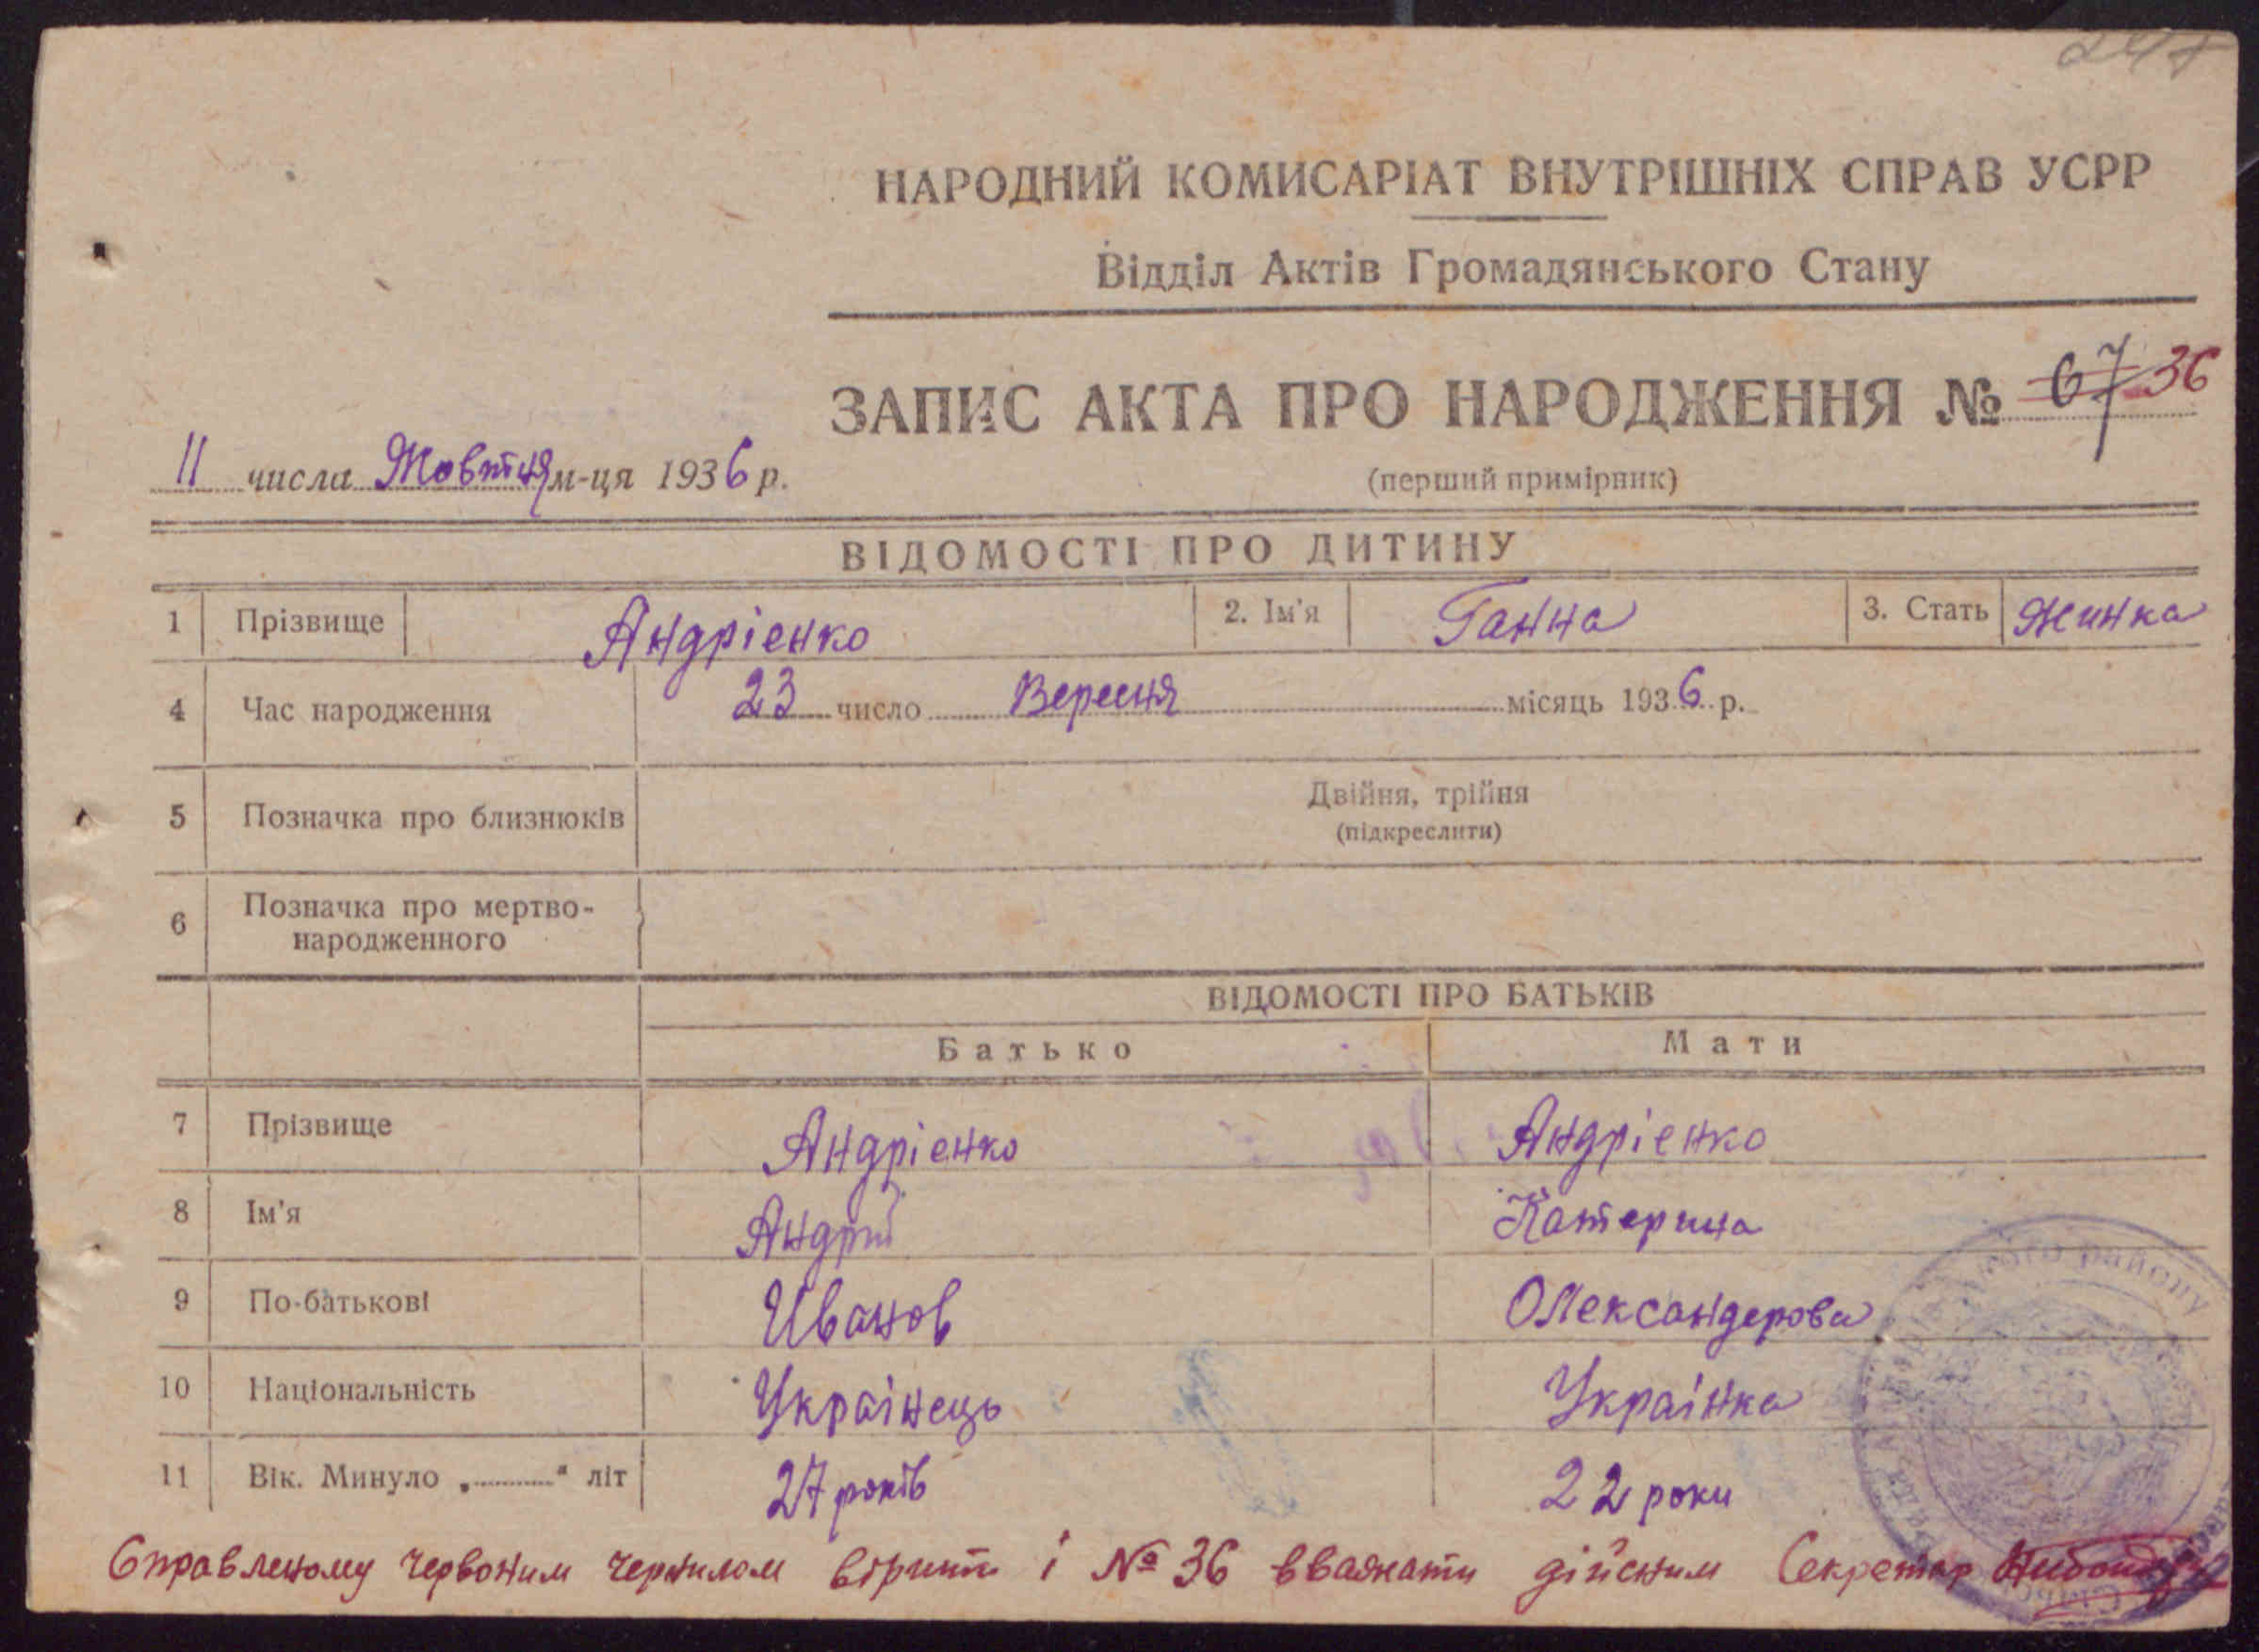 НАРОДНИЙ КОМИСАРІАТ ВНУТРІШНІХ СПРАВ УСРР
Відділ Актів Громадянського Стану
ЗАПИС АКТА ПРО НАРОДЖЕННЯ № 67 36
11 числа Жовтня м-ця 1936 р.
(перший примірник)
ВІДОМОСТІ ПРО ДИТИНУ
1 Прізвище Андріенко 2. Ім'я Ганна 3. Стать Жинка
4 Час народження 23 число Вересня місяць 1936 р.
5 Позначка про близнюків Двійня, трійня
(підкреслити)
6 Позначка про мертво-
народженного
ВІДОМОСТІ ПРО БАТЬКІВ
Батько Мати
7 Прізвище Андріенко Андріенко
8 Ім'я Андрій Катерина
9 По-батькові Иванов Олександерова
10 Національність Украінець Украінка
11 Вік. Минуло „..........“ літ 27 років 22 роки
Справленому червоним чернилом вірити і № 36 вважати дійсним Секретар
району